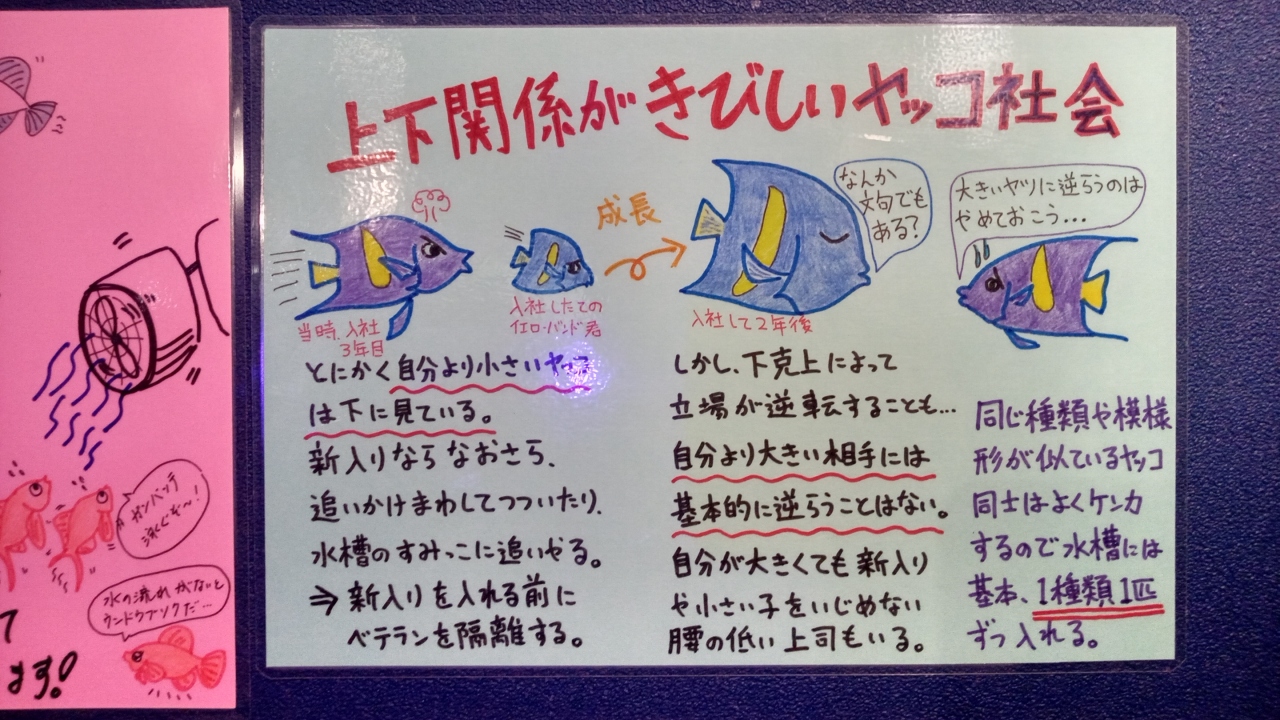 上下関係がきびしいヤッコ社会
当時、入社
3年目
入社したての
イエロ・バンド君
成長
入社して2年後
なんか
文句でも
ある?
大きいヤツに逆らうのは
やめておこう…
とにかく自分より小さいヤッコ
は下に見ている。
新入りならなおさら、
追いかけまわしてつついたり、
水槽のすみっこに追いやる。
⇒新入りを入れる前に
ベテランを隔離する。
しかし、下克上によって
立場が逆転することも…
自分より大きい相手には
基本的に逆らうことはない。
自分が大きくても新入り
や小さい子をいじめない
腰の低い上司もいる。
同じ種類や模様
形が似ているヤッコ
同士はよくケンカ
するので水槽には
基本、1種類1匹
ずつ入れる。
ガンバッテ
泳ぐぞ~!
水の流れがないと
ウンドウブソクだ…
ます!